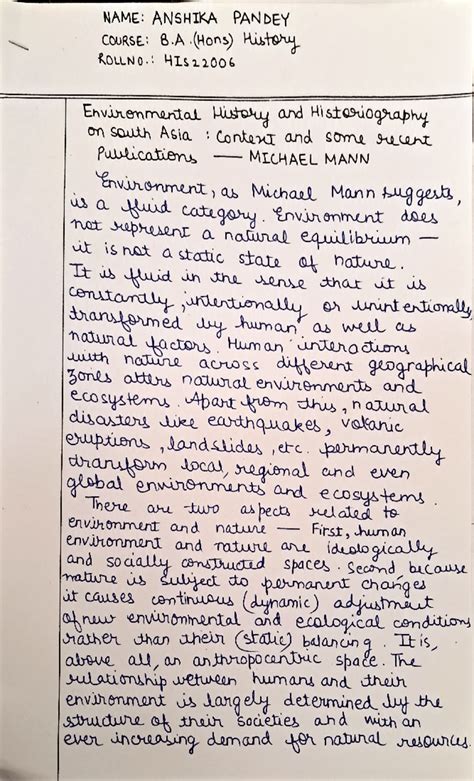 NAME: ANSHIKA PANDEY
COURSE: B.A.(Hons) History
ROLLNO.: HIS22006
Environmental History and Historiography
on South Asia : Context and some recent
Publications — MICHAEL MANN
Environment, as Michael Mann suggests,
is a fluid category. Environment does
not represent a natural equilibrium —
it is not a static state of nature.
It is fluid in the sense that it is
constantly, intentionally or unintentionally,
transformed by human as well as
natural factors. Human interactions
with nature across different geographical
zones alters natural environments and
ecosystems. Apart from this, natural
disasters like earthquakes, volcanic
eruptions, landslides, etc. permanently
transform local, regional and even
global environments and ecosystems.
There are two aspects related to
environment and nature — First, human
environment and nature are ideologically
and socially constructed spaces. Second, because
nature is subject to permanent changes
it causes continuous (dynamic) adjustment
of new environmental and ecological conditions
rather than their (static) balancing. It is,
above all, an anthropocentric space. The
relationship between humans and their
environment is largely determined by the
structure of their societies and with an
ever increasing demand for natural resources.